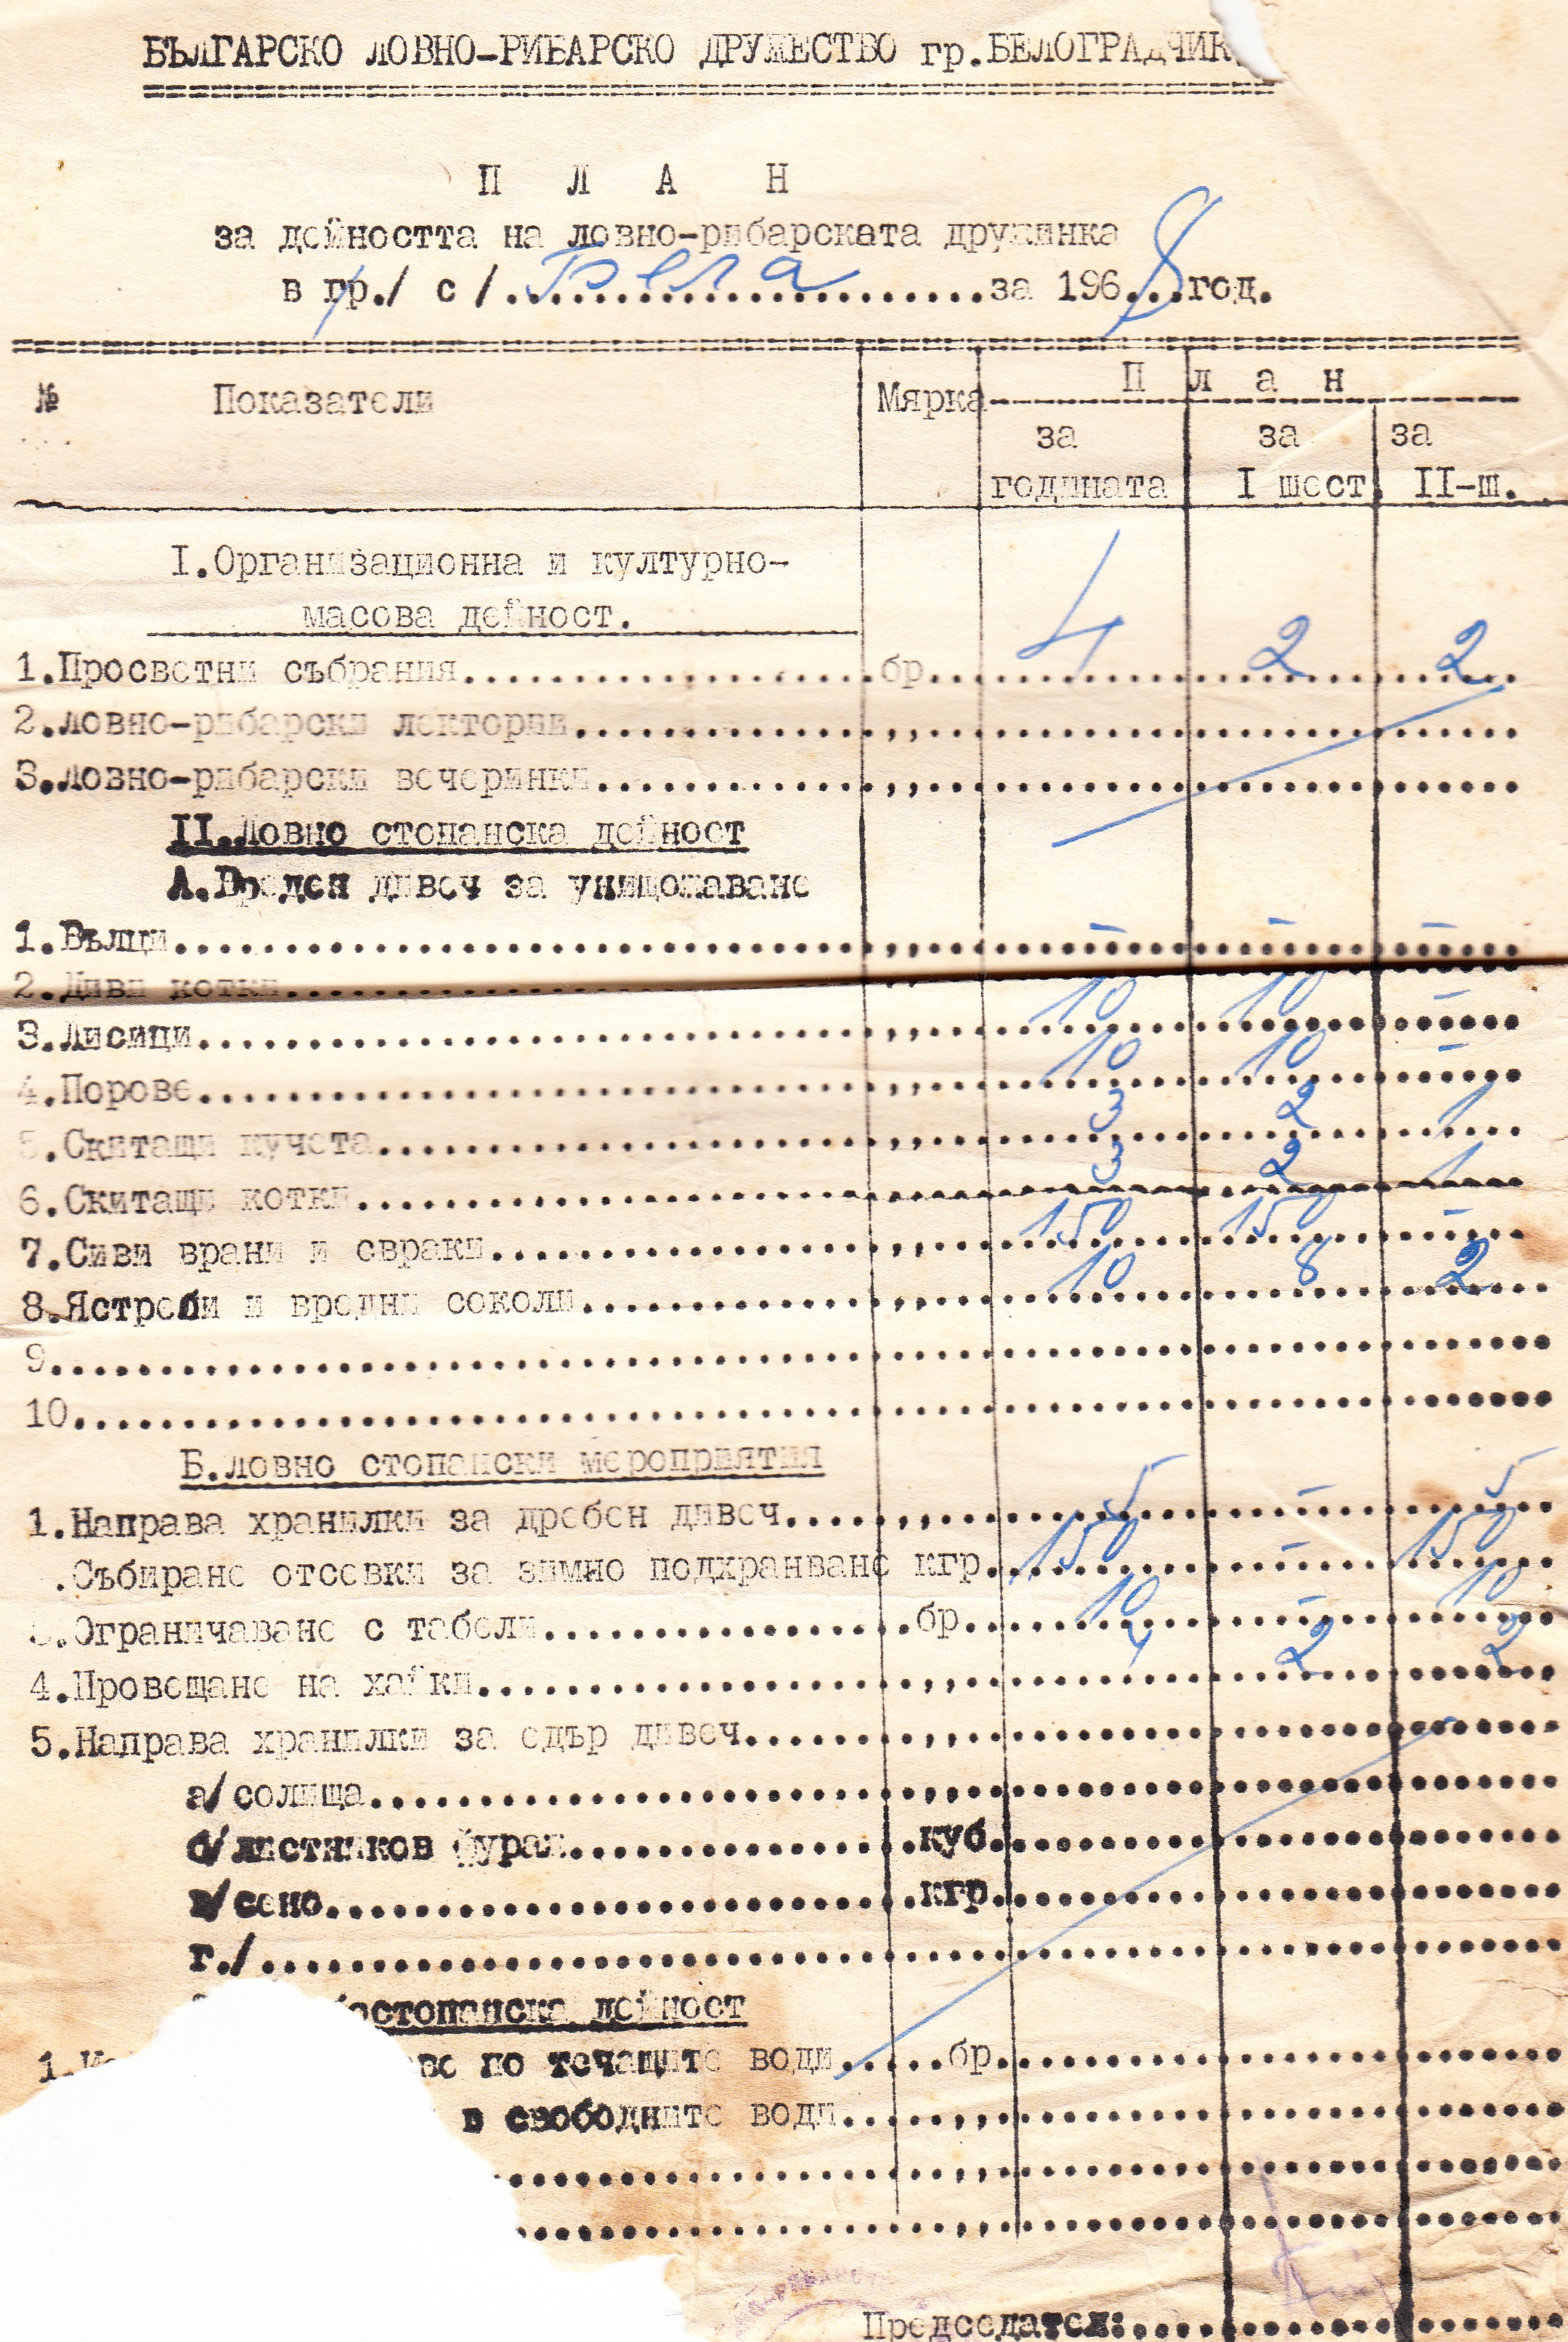 БЪЛГАРСКО ЛОВНО-РИБАРСКО ДРУЖЕСТВО гр.БЕЛОГРАДЧИК
П Л А Н
за дейността на ловно-рибарската дружинка
в гр./ с /. Бела ......за 196 8 год.
№ Показатели Мярка П л а н
за за за
годината I шест. II-ш.
I.Организационна и културно-
масова дейност.
1.Просветни събрания..........бр. 4 2 2
2.Ловно-рибарски лектории.......,,
3.Ловно-рибарски вечеринки.......,,
II.Ловно стопанска дейност
А.Вреден дивеч за унищожаване
1.Вълци..........,, - - -
2.Диви котки.......,, 10 10 -
3.Лисици..........,, 10 10 -
4.Порове..........,, 3 2 1
5.Скитащи кучета..........,, 3 2 1
6.Скитащи котки.......... 150 150 -
7.Сиви врани и свраки..........,, 10 8 2
8.Ястреби и вредни соколи..........,,
9..........
10..........
Б.Ловно стопански мероприятия
1.Направа хранилки за дребен дивеч.....,, 5 - 5
.Събиране отсевки за зимно подхранване кгр. 150 - 150
.Ограничаване с табели..........бр. 10 - 10
4.Провещане на хайки..........,, 4 2 2
5.Направа хранилки за едър дивеч.......,,
а/солища..........,,
б/листников фураж..........куб.
в/сено..........кгр.
г./..........
стопанска дейност
1. по течащите води.....бр.
в свободните води.....,,
..........,,
..........,,
Председател:..........